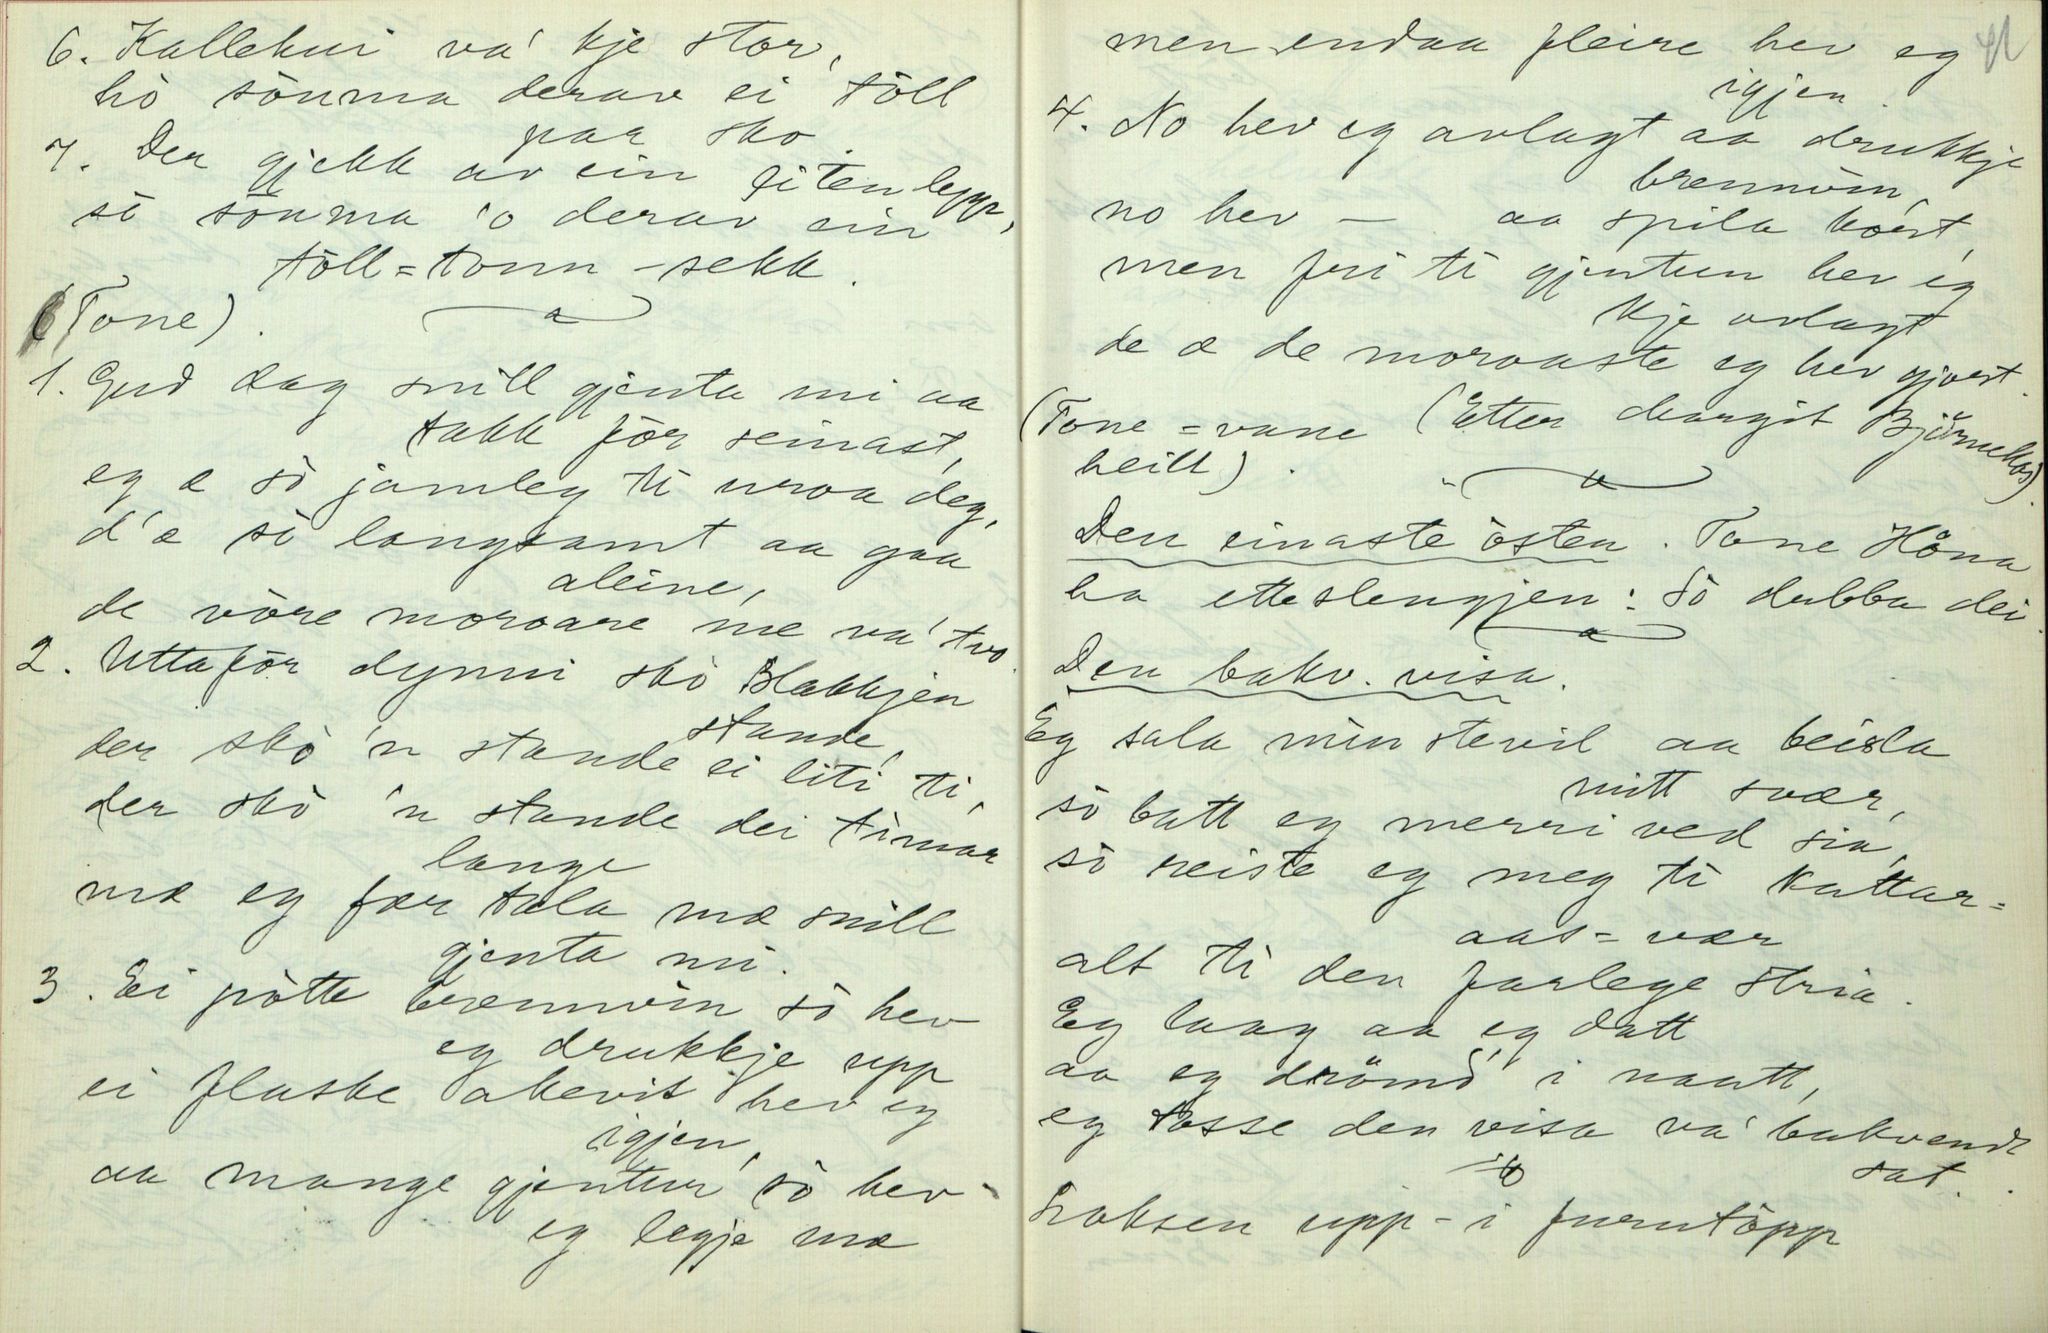 6. Kallehui va' kje stor,
hò sòuma derav ei tòll
par sko.
7. Der gjekk av ein liten lepp,
sò sòuma 'o derav ein
tòll-tonn-sekk.
(Tone).
1. Gud dag snill gjenta mi aa
takk fòr seinast,
eg æ sò jamleg ti uroa deg,
d'æ sò langsamt aa gaa
aleine,
de vòre moroare me va' tvo.
2. Uttafòr dynni skò Blakkjen
stande,
der skò 'n stande ei liti ti,
der skò 'n stande dei timar
lange
mæ eg fær tala mæ snill
gjenta mi.
3. Ei pòtte brennvin sò hev
eg drukkje upp
ei flaske akevit hev eg
igjen,
aa mange gjentur sò hev
eg legje mæ
men endaa fleire hev eg
igjen.
4. No hev eg avlagt aa drukkje
brennvin,
no hev — aa spila kort,
men fri ti gjentun hev eg
kje avlagt
de æ de moroaste eg hev gjort.
(Tone = vane (Etter Margit Bjørnekos)
heill).
Den einaste òsten. Tone Hòna
ha etteslengjen: Sò dubba dei.
Den bakv. visa.
Eg sala min stevil aa beisla
mitt svær,
sò batt eg merri ved sia,
sò reiste eg meg ti Kattar-
aas-vær
alt ti den farlege stria.
Eg laag aa eg datt
aa eg drømd' i naatt,
eg tosse den visa va' bakvendt
sat.
Laksen upp-i furutòpp